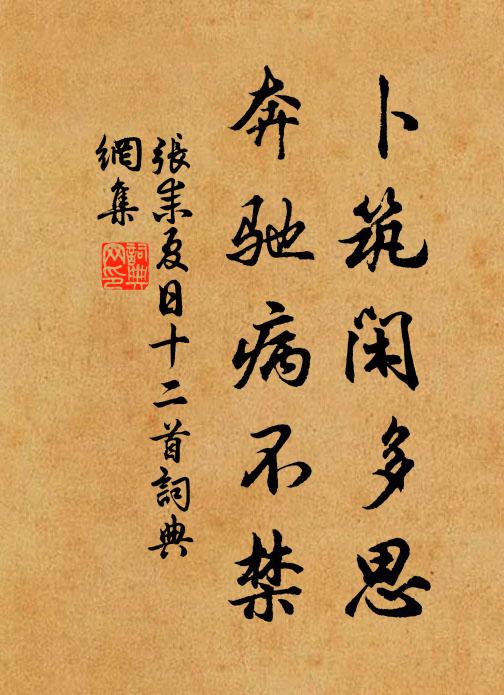 卜筑闲多思
奔驰病不禁
張耒夏日十二首詞典
網集
詞典
网印